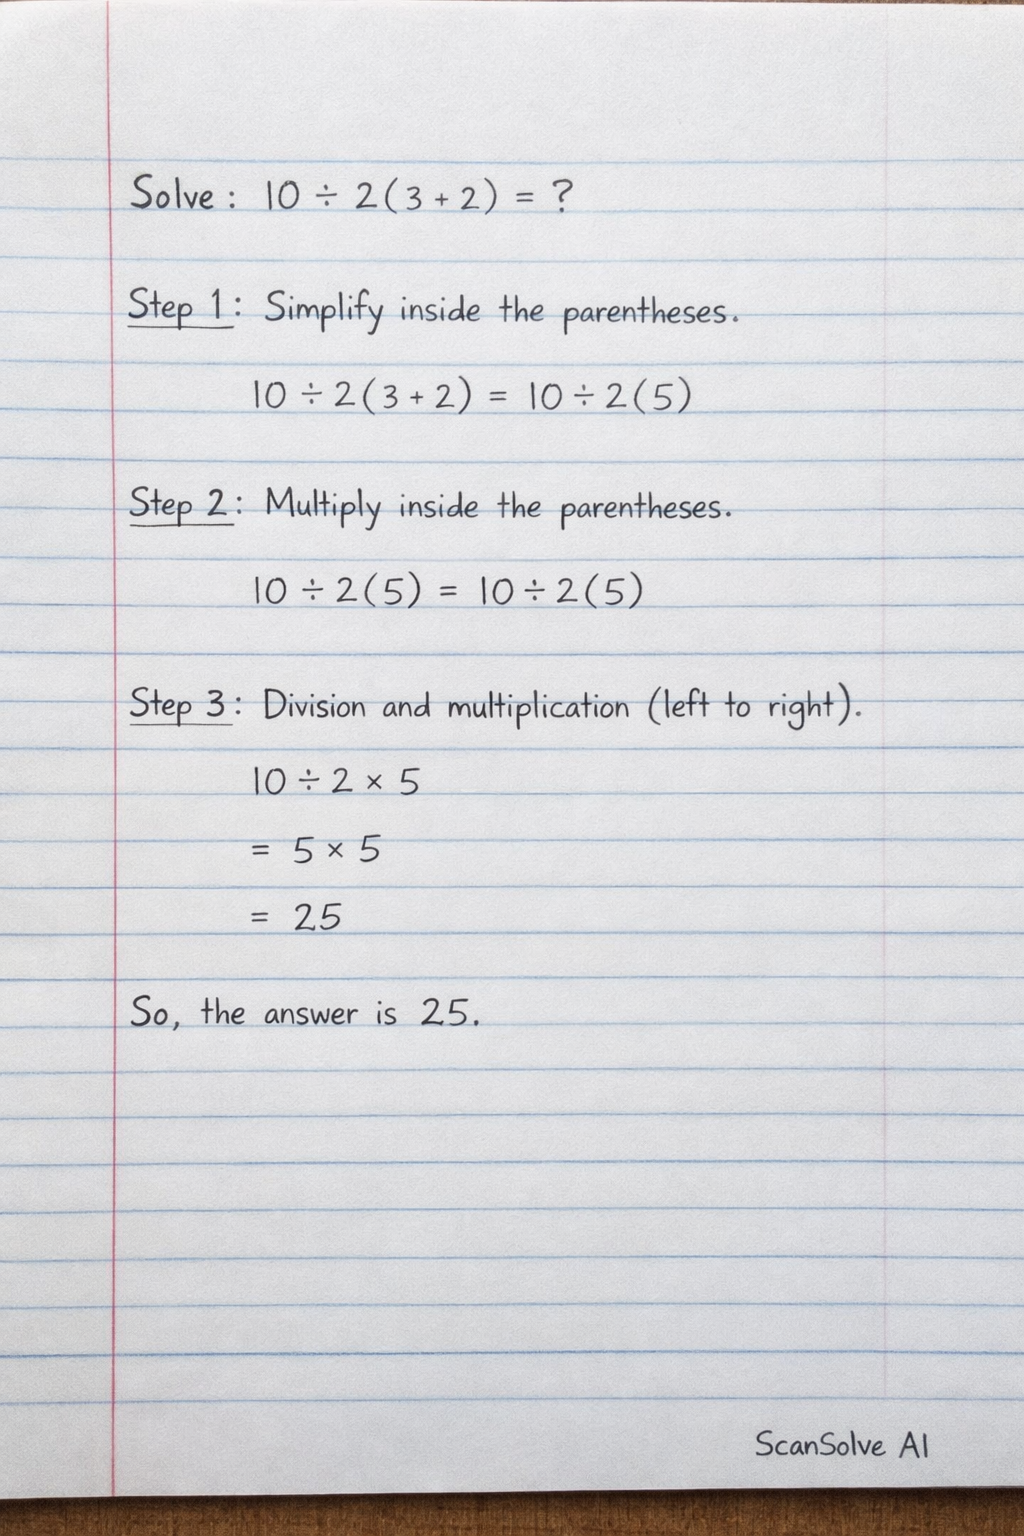 Solve: 10 ÷ 2(3 + 2) = ?
Step 1: Simplify inside the parentheses.
10 ÷ 2(3 + 2) = 10 ÷ 2(5)
Step 2: Multiply inside the parentheses.
10 ÷ 2(5) = 10 ÷ 2(5)
Step 3: Division and multiplication (left to right).
10 ÷ 2 × 5
= 5 × 5
= 25
So, the answer is 25.
ScanSolve AI